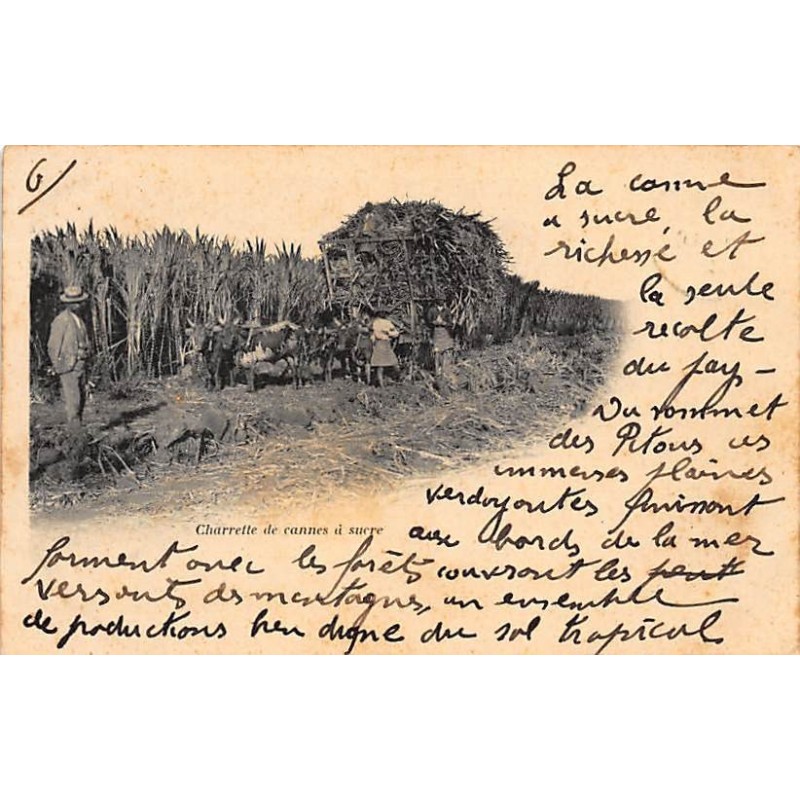 6/
La canne
a sucre, la
richesse et
la seule
récolte
du pays -
Du sommet
des Pitons ces
immenses plaines
verdoyantes finissant
aux bords de la mer
Charrette de cannes à sucre
forment avec les forêts couvrant les
versants des montagnes, un ensemble
de productions bien digne du sol tropical